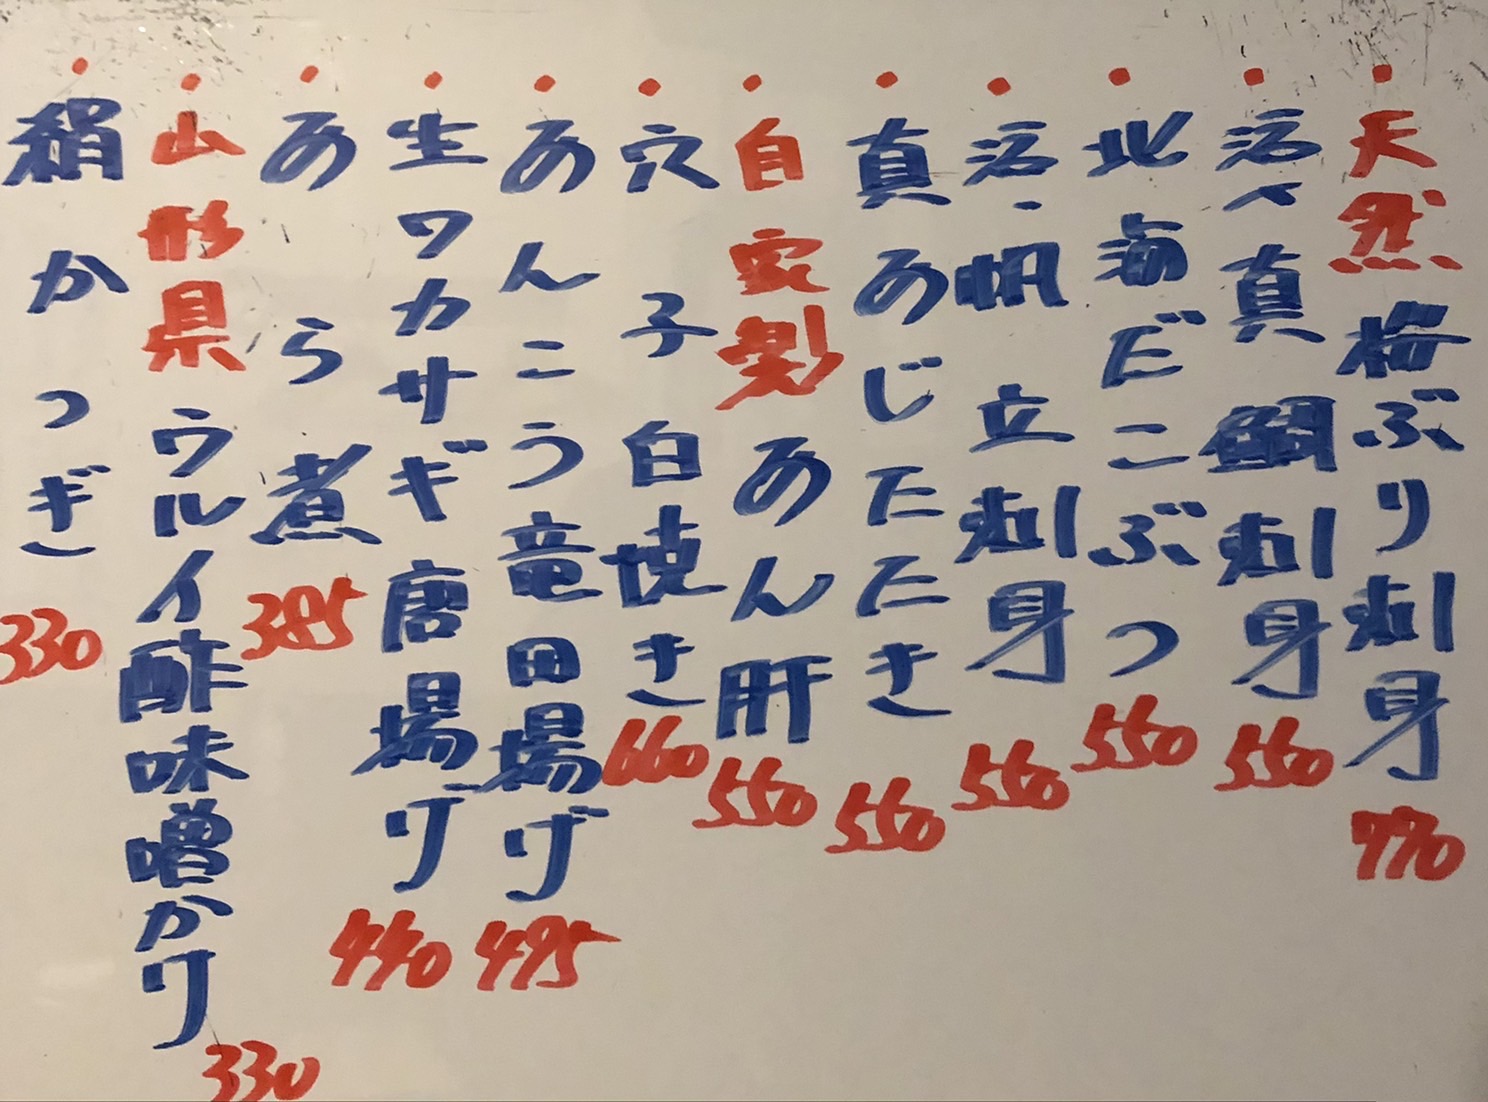 ・天然梅ぶり刺身 770
・活〆真鯛刺身 550
・北海だこぶつ 550
・活・帆立刺身 550
・真あじたたき 550
・自家製あん肝 550
・穴子白焼き 660
・あんこう竜田揚げ 495
・生ワカサギ唐揚げ 440
・あら煮 385
・山形県ウルイ酢味噌かけ 330
・絹かつぎ 330